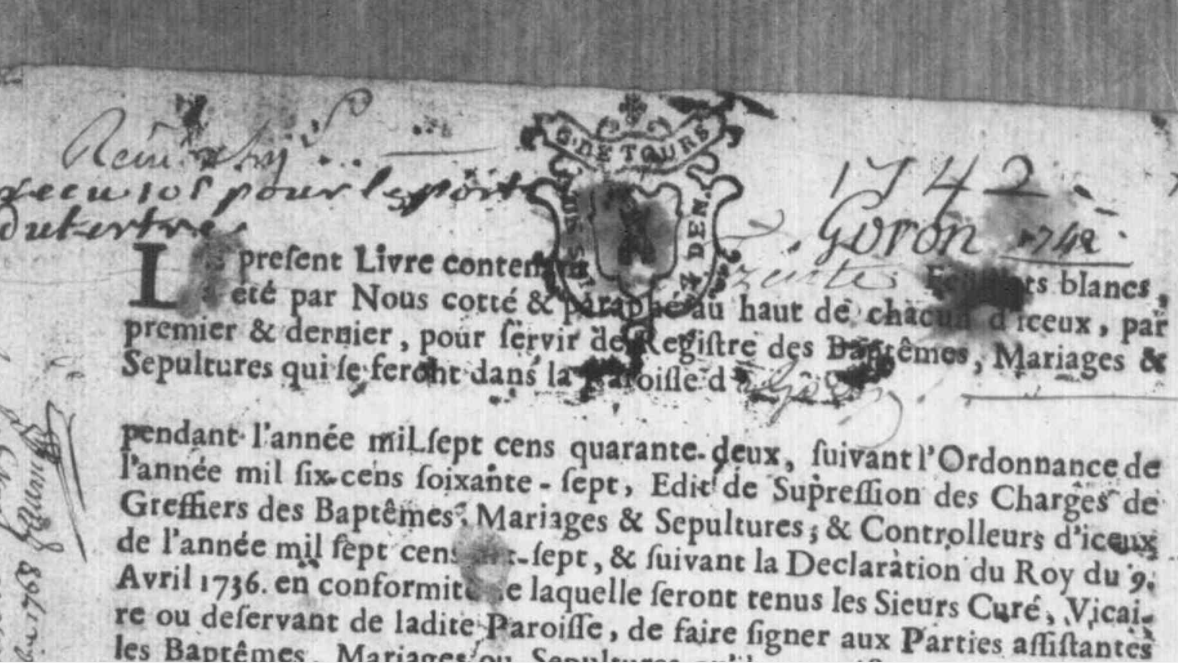 G. DE TOURS
1742
pour le port
dutertre
Goron 1742
Le present Livre contenant Feuillets blancs,
a été par Nous cotté & paraphé au haut de chacun d'iceux, par
premier & dernier, pour ſervir de Regiſtre des Baptêmes, Mariages &
Sepultures qui ſe feront dans la Paroiſſe d
pendant l'année mil ſept cens quarante-deux, ſuivant l'Ordonnance de
l'année mil ſix-cens ſoixante-ſept, Edit de Supreſſion des Charges de
Greffiers des Baptêmes, Mariages & Sepultures; & Controlleurs d'iceux
de l'année mil ſept cens -ſept, & ſuivant la Declaration du Roy du 9.
Avril 1736. en conformité de laquelle ſeront tenus les Sieurs Curé, Vicai-
re ou deſervant de ladite Paroiſſe, de faire ſigner aux Parties aſſiſtantes
les Baptêmes, Mariages ou Sepultures
1768